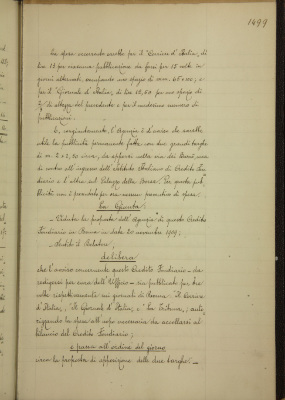 1499
La spesa occorrendo sarebbe per il "Corriere d'Italia" di
lire 13 per ciascuna pubblicazione da farsi per 15 volte in
giorni alternati, occupando uno spazio di m.m. 65 x 110, e
per il "Giornale d'Italia" di lire 22,50 per uno spazio di
di altezza del precedente e per il medesimo numero di
pubblicazioni.
E, conseguentemente, l'Agenzia è di avviso che sarebbe
utile la pubblicità permanente fatta con due grandi targhe
di m. 2 x 2,50 circa, da apporsi nella via dei
di contro all'ingresso dell'Istituto Italiano di Credito Fon
diario e l'altra sul Palazzo della Borsa. Per questa pub
blicità non è preveduto per ora nessun preventivo di spesa.
La Giunta:
Vedute le proposte dell'Agenzia di questo Credito
Fondiario in Roma in data 20 novembre 1909;
Udito il Relatore;
delibera
che l'avviso concernente questo Credito Fondiario - da
redigersi per cura dell'Ufficio - sia pubblicato per tre
volte rispettivamente nei giornali di Roma: Il Corriere
d'Italia, Il Giornale d'Italia, e La Tribuna, auto
rizzando la spesa all'uopo necessaria da accollarsi al
bilancio del Credito Fondiario;
e passa all'ordine del giorno
circa la proposta di apposizione delle due targhe. -